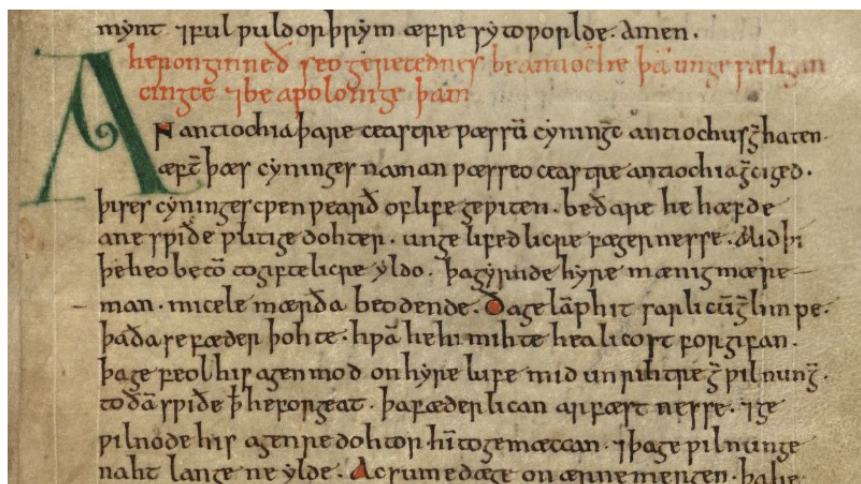 mynt ⁊ ful ƿuldorþrym æfre sy to ƿorlde. Amen.
her onginneð seo gerecednes be antioche þā ungesæligan
cingce ⁊ be apolonige þam
AN antiochia þare ceastre ƿæs sū cyningc antiochus g̃haten.
æft̄ þæs cyninges naman ƿæs seo ceastre antiochia g̃ciged.
þises cyninges cƿen ƿearð of life geƿiten. be ðare he hæfde
ane sƿiðe ƿlitige dohter. ungelifedlicre fægernesse. Mid þi
þe heo becō to giftelicre yldo. þa gyrnde hyre mænig mære
man. micele mærða beodende. Ða gelāp hit sarlicū g̃limpe.
þa ða se fæder þohte. hƿā he hi mihte healicost forgifan.
þa gefeol his agen mod on hyre lufe mid unrihtre g̃ƿilnung̃.
to ðā sƿiðe ꝥ he forgeat. þa fæderlican arfæstnesse. ⁊ ge
ƿilnode his agenre dohtor hī to gemæccan. ⁊ þa geƿilnunge
naht lange ne ylde. Ac sume dæge on ærne mergen. þa he